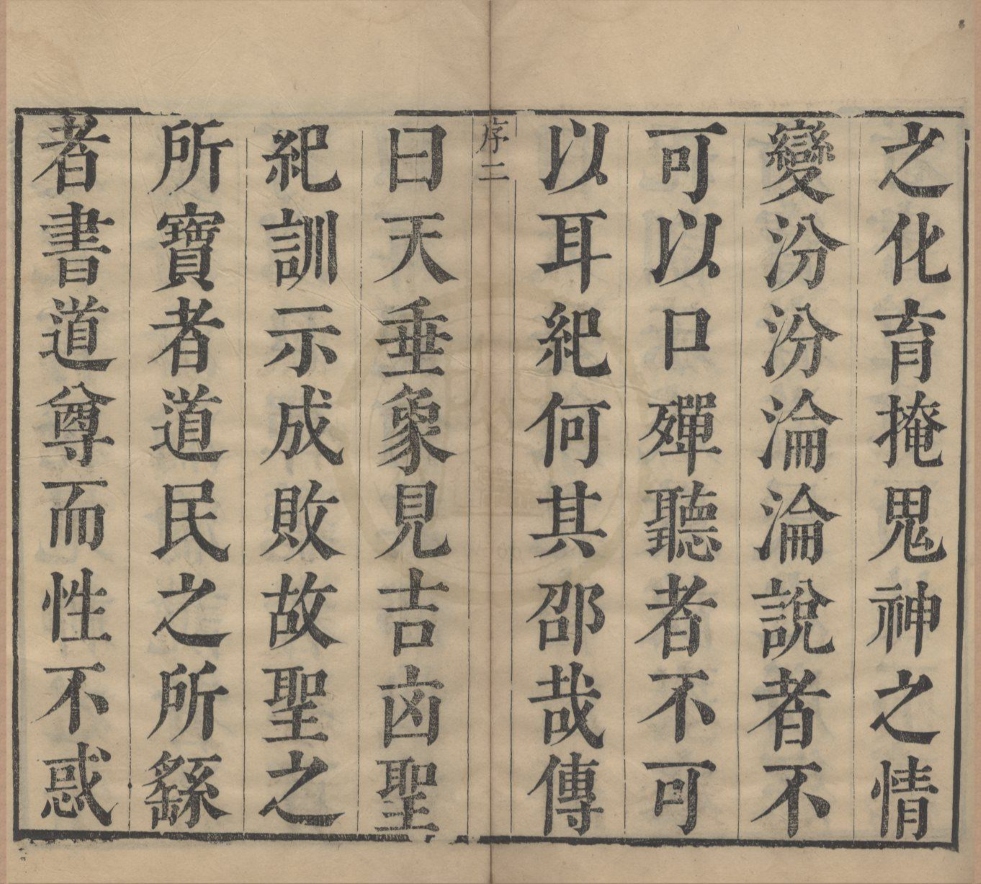 之化育掩鬼神之情
變汾汾淪淪說者不
可以口殫聽者不可
以耳紀何其邵哉傳
序二
曰天垂象見吉凶聖
紀訓示成敗故聖之
所寶者道民之所繇
者書道尊而性不惑